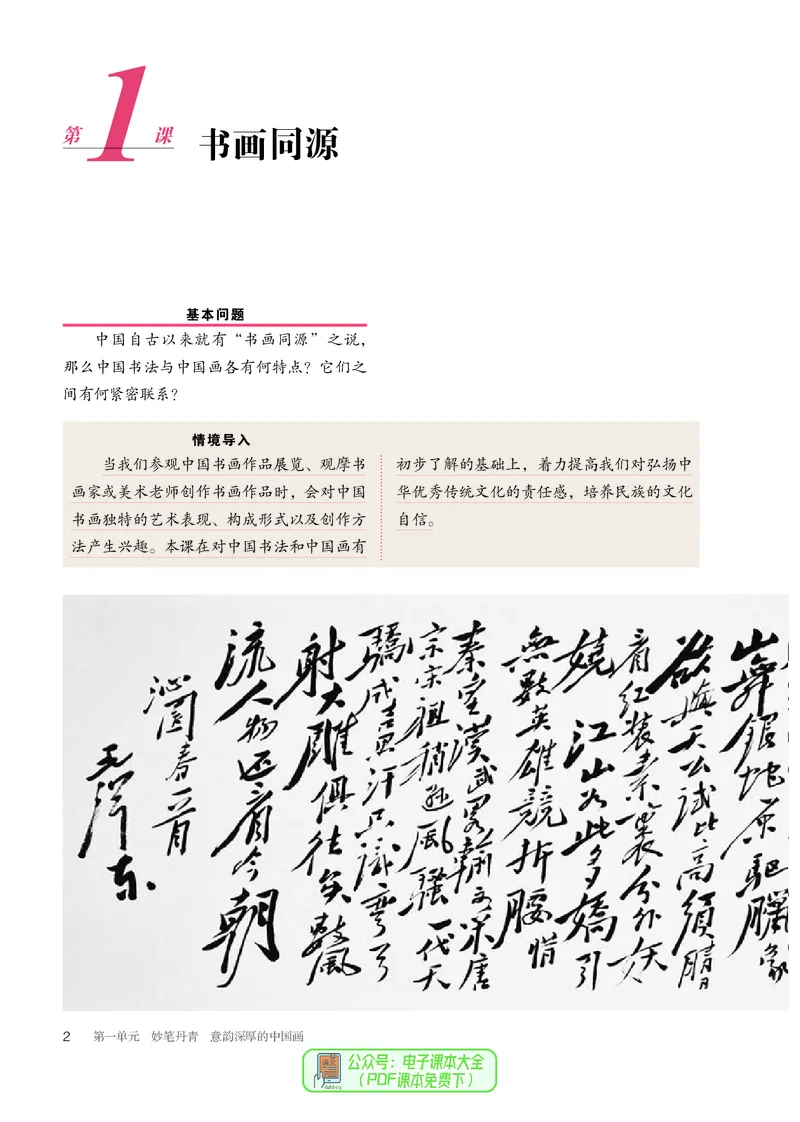 第1课 书画同源
基本问题
中国自古以来就有“书画同源”之说，
那么中国书法与中国画各有何特点？它们之
间有何紧密联系？
情境导入
当我们参观中国书画作品展览、观摩书
画家或美术老师创作书画作品时，会对中国
书画独特的艺术表现、构成形式以及创作方
法产生兴趣。本课在对中国书法和中国画有
初步了解的基础上，着力提高我们对弘扬中
华优秀传统文化的责任感，培养民族的文化
自信。
山舞銀蛇原驅臘象
欲與天公試比高須晴
看紅装素裹分外妖
嬈 江山如此多嬌引
無數英雄競折腰惜
秦皇漢武略輸文采唐
宗宋祖稍遜風騷一代天
驕成吉思汗只識彎弓
射大雕俱往矣數風
流人物还看今朝
沁園春一首
毛澤东
2 第一单元 妙笔丹青 意韵深厚的中国画
语文
公众号：电子课本大全
（PDF课本免费下）